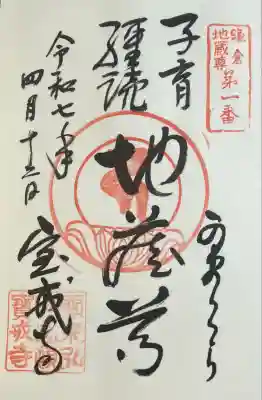 鎌倉
地蔵尊
第一番
かまくら
子育
經読
地蔵尊
令和七年
四月
宝戒寺
寶戒寺